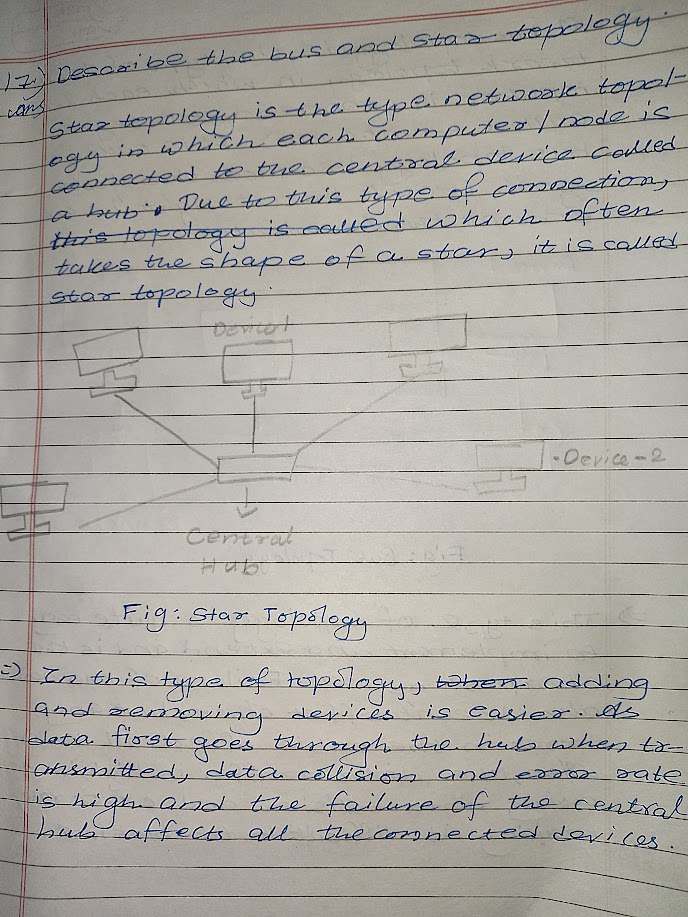 17.) Describe the bus and star topology.
ans
Star topology is the type network topol-
ogy in which each computer / node is
connected to the central device called
a hub. Due to this type of connection,
this topology is called which often
takes the shape of a star, it is called
star topology.
Device1
.Device-2
Central
Hub
Fig: Star Topology
=> In this type of topology, when adding
and removing devices is easier. As
data first goes through the hub when tr-
ansmitted, data collision and error rate
is high and the failure of the central
hub affects all the connected devices.